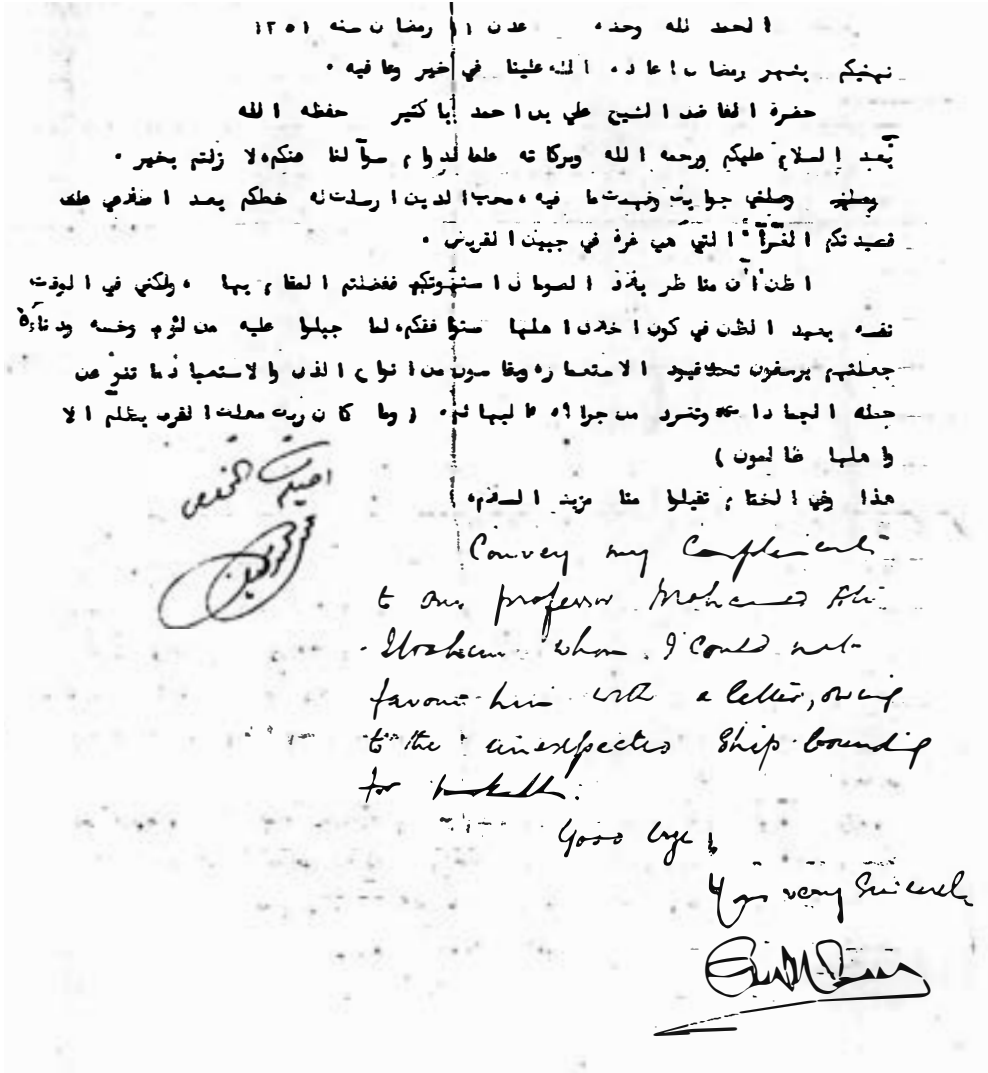 الحمد لله وحده عدن ١١ رمضان سنه ١٣٥١
نهنيكم بشهر رمضان اعاده الله علينا في خير وعافيه .
حضرة الفاضل الشيخ علي بن احمد باكثير حفظه الله
بعد السلام عليكم ورحمه الله وبركاته على الدوام سؤآلنا عنكم، لا زلتم بخير .
وصلني جوابك وفهمت ما فيه، محب الدين ارسلت له خطكم بعد اطلاعي على
قصيدتكم الغرآء التي هي غرة في جبين القريض .
اظن أن مناظر بلاد الصومال استهوتكم ففضلتم المقام بها ، ولكني في الوقت
نفسه بعيد الظن في كون اخلاق اهلها ستوافقكم، لما جبلوا عليه من لؤم وخسه ودناءة
جعلتهم يرسفون تحت قيود الاستعمار، ويقاسون من انواع الذل والاستعباد ما تنؤ عن
حمله الجمادات وتنفرد من جرائه البهائم ( وما كان ربك مهلك القرى بظلم الا
واهلها ظالمون )
هذا وفي الختام تقبلوا منا مزيد السلام،
المخلص
Convey my Compliments
to our professor Mohamed Ali
Ibrahim whom I could not
favour him with a letter, owing
to the unexpected ship bounding
for
Good bye!
Yours very Sincerely